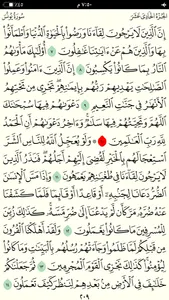 ٪٤٥ ٧:٥٠ م
الجزء الحادي عشر سورة يونس
إِنَّ ٱلَّذِينَ لَا يَرْجُونَ لِقَآءَنَا وَرَضُوا۟ بِٱلْحَيَوٰةِ ٱلدُّنْيَا وَٱطْمَأَنُّوا۟
بِهَا وَٱلَّذِينَ هُمْ عَنْ ءَايَٰتِنَا غَٰفِلُونَ ٧ أُو۟لَٰٓئِكَ مَأْوَىٰهُمُ
ٱلنَّارُ بِمَا كَانُوا۟ يَكْسِبُونَ ٨ إِنَّ ٱلَّذِينَ ءَامَنُوا۟ وَعَمِلُوا۟
ٱلصَّٰلِحَٰتِ يَهْدِيهِمْ رَبُّهُم بِإِيمَٰنِهِمْ ۖ تَجْرِى مِن تَحْتِهِمُ
ٱلْأَنْهَٰرُ فِى جَنَّٰتِ ٱلنَّعِيمِ ٩ دَعْوَىٰهُمْ فِيهَا سُبْحَٰنَكَ
ٱللَّهُمَّ وَتَحِيَّتُهُمْ فِيهَا سَلَٰمٌ ۚ وَءَاخِرُ دَعْوَىٰهُمْ أَنِ ٱلْحَمْدُ
لِلَّهِ رَبِّ ٱلْعَٰلَمِينَ ١٠ ۞ وَلَوْ يُعَجِّلُ ٱللَّهُ لِلنَّاسِ ٱلشَّرَّ
ٱسْتِعْجَالَهُم بِٱلْخَيْرِ لَقُضِىَ إِلَيْهِمْ أَجَلُهُمْ ۖ فَنَذَرُ ٱلَّذِينَ
لَا يَرْجُونَ لِقَآءَنَا فِى طُغْيَٰنِهِمْ يَعْمَهُونَ ١١ وَإِذَا مَسَّ ٱلْإِنسَٰنَ
ٱلضُّرُّ دَعَانَا لِجَنۢبِهِۦٓ أَوْ قَاعِدًا أَوْ قَآئِمًا فَلَمَّا كَشَفْنَا
عَنْهُ ضُرَّهُۥ مَرَّ كَأَن لَّمْ يَدْعُنَآ إِلَىٰ ضُرٍّ مَّسَّهُۥ ۚ كَذَٰلِكَ زُيِّنَ
لِلْمُسْرِفِينَ مَا كَانُوا۟ يَعْمَلُونَ ١٢ وَلَقَدْ أَهْلَكْنَا ٱلْقُرُونَ
مِن قَبْلِكُمْ لَمَّا ظَلَمُوا۟ ۙ وَجَآءَتْهُمْ رُسُلُهُم بِٱلْبَيِّنَٰتِ وَمَا كَانُوا۟
لِيُؤْمِنُوا۟ ۚ كَذَٰلِكَ نَجْزِى ٱلْقَوْمَ ٱلْمُجْرِمِينَ ١٣ ثُمَّ جَعَلْنَٰكُمْ
خَلَٰٓئِفَ فِى ٱلْأَرْضِ مِنۢ بَعْدِهِمْ لِنَنظُرَ كَيْفَ تَعْمَلُونَ ١٤
٢٠٩